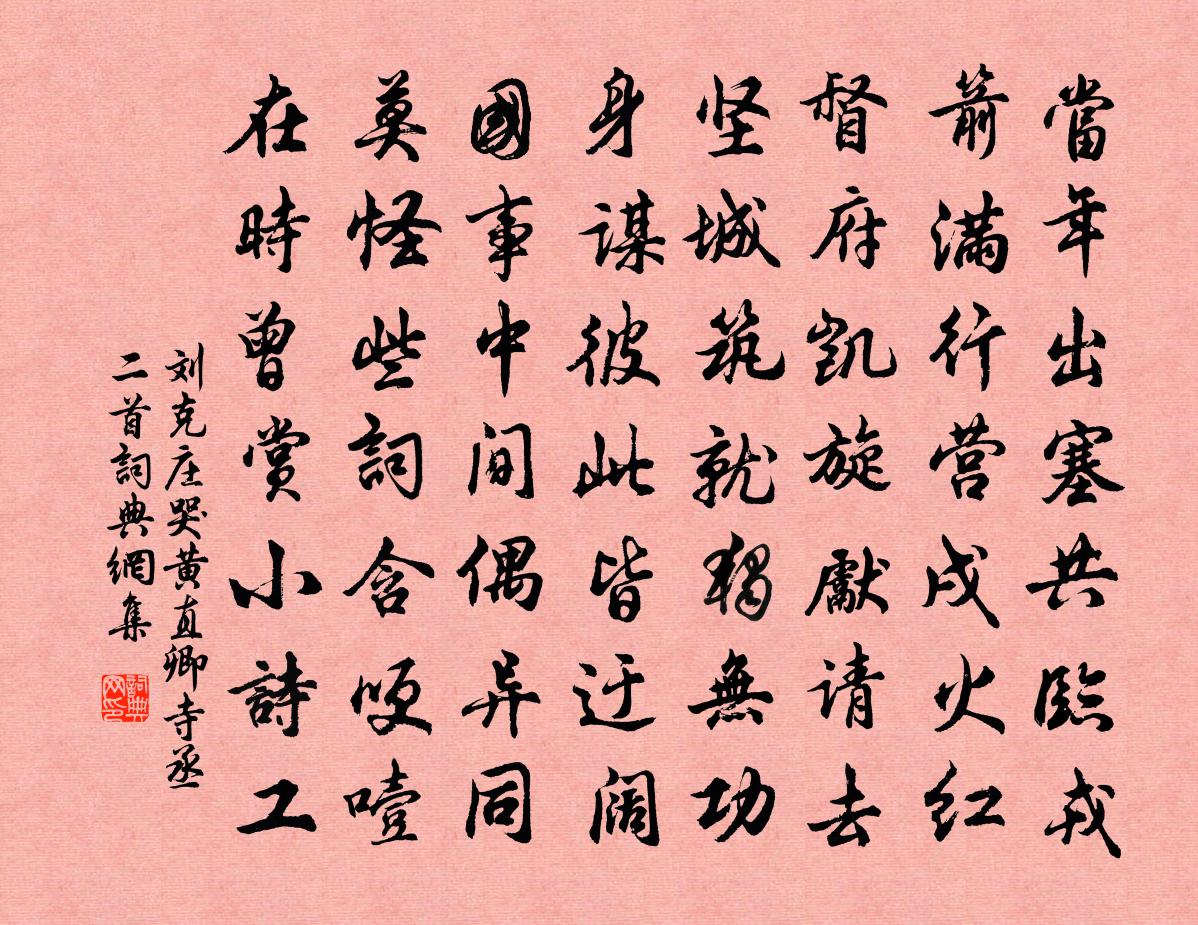 當年出塞共臨戎
箭滿行营戍火红
督府凯旋獻请去
坚城筑就獨無功
身謀彼此皆迂阔
國事中间偶异同
莫怪些詞含哽噎
在時曾賞小詩工
刘克庄哭黄直卿寺丞
二首詞典網集
詞典
网印